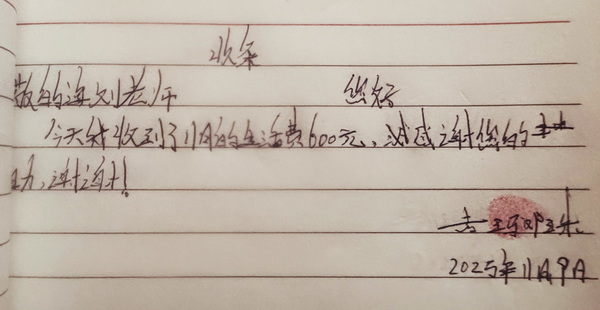 收条
敬的海刘老师 您好
今天我收到了11月的生活费600元,减感谢您的
助,谢谢!
2025年11月9日